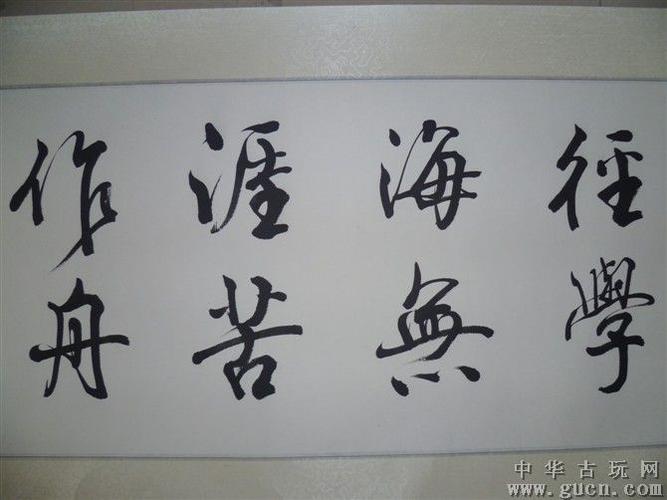 徑學
海無
涯苦
作舟
中华古玩网
www.gucn.com